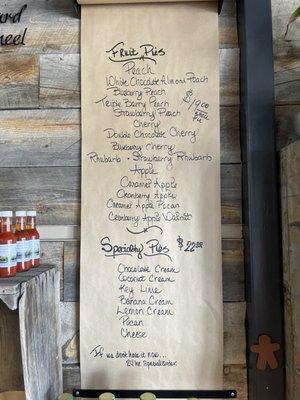 Fruit Pies
Peach
White Chocolate Almond Peach
Blueberry Peach
Triple Berry Peach
Strawberry Peach
$19.00
Cherry
Double Chocolate Cherry
Blueberry Cherry
Rhubarb • Strawberry Rhubarb
Apple
Caramel Apple
Cranberry Apple
Caramel Apple Pecan
Cranberry Apple Walnut
Speciality Pies $22.00
Chocolate Cream
Coconut Cream
Key Lime
Banana Cream
Lemon Cream
Pecan
Cheese
If we don't have it now...
24 hr. Special Order.